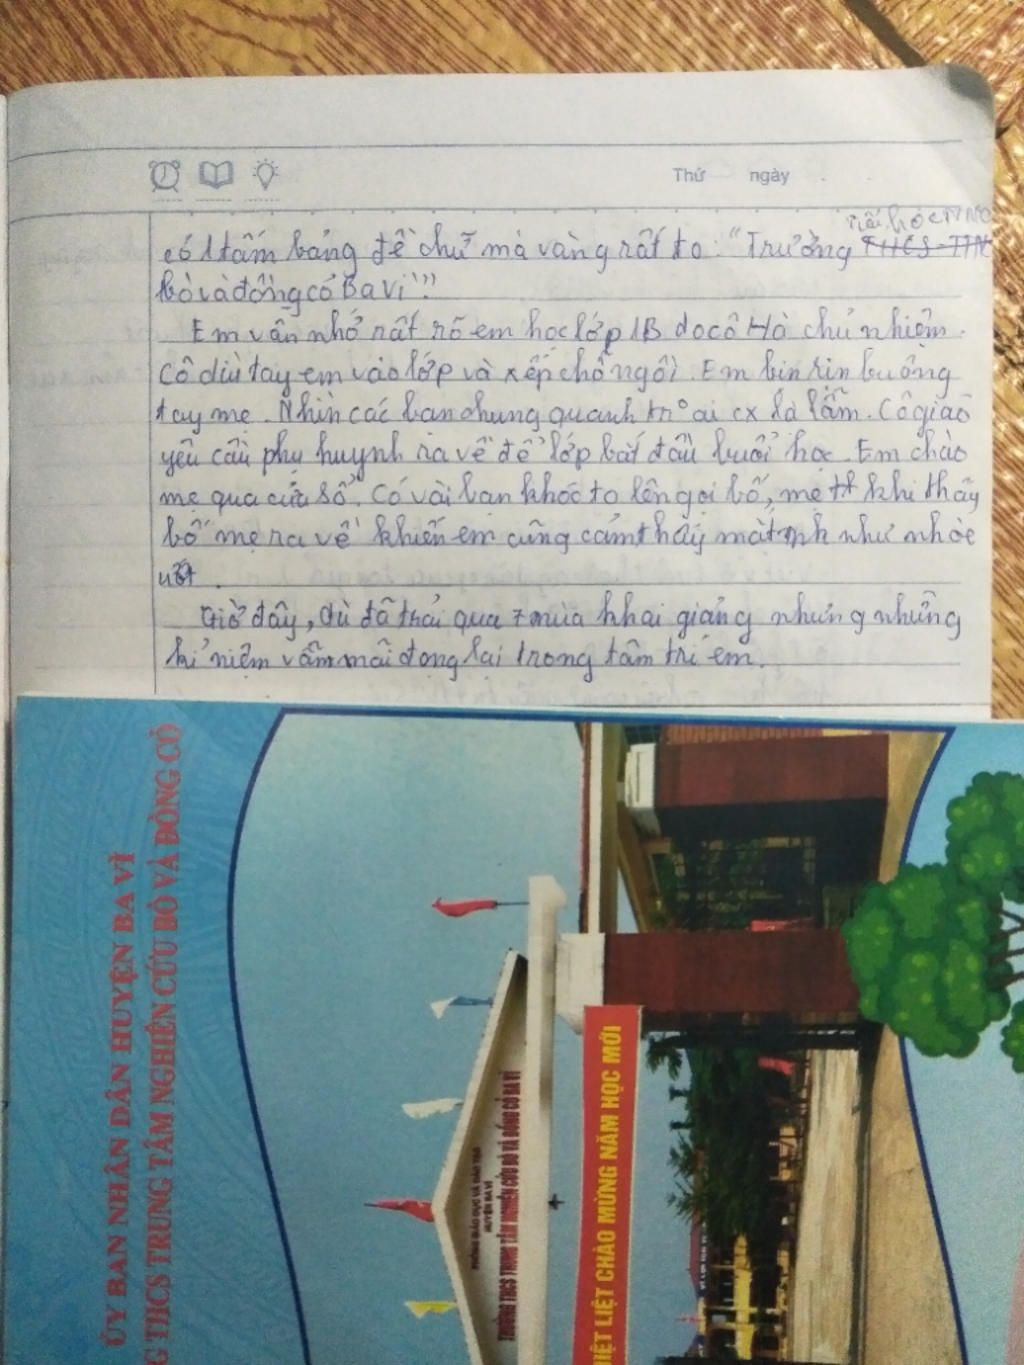 Thứ ngày
tiểu học TTNC
có 1 tấm bảng đề chữ mà vàng rất to: "Trường THCS-TTNC
bò và đồng cỏ Ba Vì"."
Em vẫn nhớ rất rõ em học lớp 1B do cô Hà chủ nhiệm.
Cô dìu tay em vào lớp và xếp chỗ ngồi. Em bịn rịn buông
tay mẹ. Nhìn các bạn chung quanh tr ai cx lạ lẫm. Cô giáo
yêu cầu phụ huynh ra về để lớp bắt đầu buổi học. Em chào
mẹ qua cửa sổ. Có vài bạn khóc to lên gọi bố, mẹ khi thấy
bố mẹ ra về khiến em cũng cảm thấy mắt mk như nhòe
ướt.
Giờ đây, dù đã trải qua 7 mùa khai giảng nhưng những
kỉ niệm vẫn mãi đọng lại trong tâm trí em.
ỦY BAN NHÂN DÂN HUYỆN BA VÌ
G THCS TRUNG TÂM NGHIÊN CỨU BÒ VÀ ĐỒNG CỎ
PHÒNG GIÁO DỤC VÀ ĐÀO TẠO
HUYỆN BA VÌ
TRƯỜNG THCS TRUNG TÂM NGHIÊN CỨU BÒ VÀ ĐỒNG CỎ BA VÌ
NHIỆT LIỆT CHÀO MỪNG NĂM HỌC MỚI